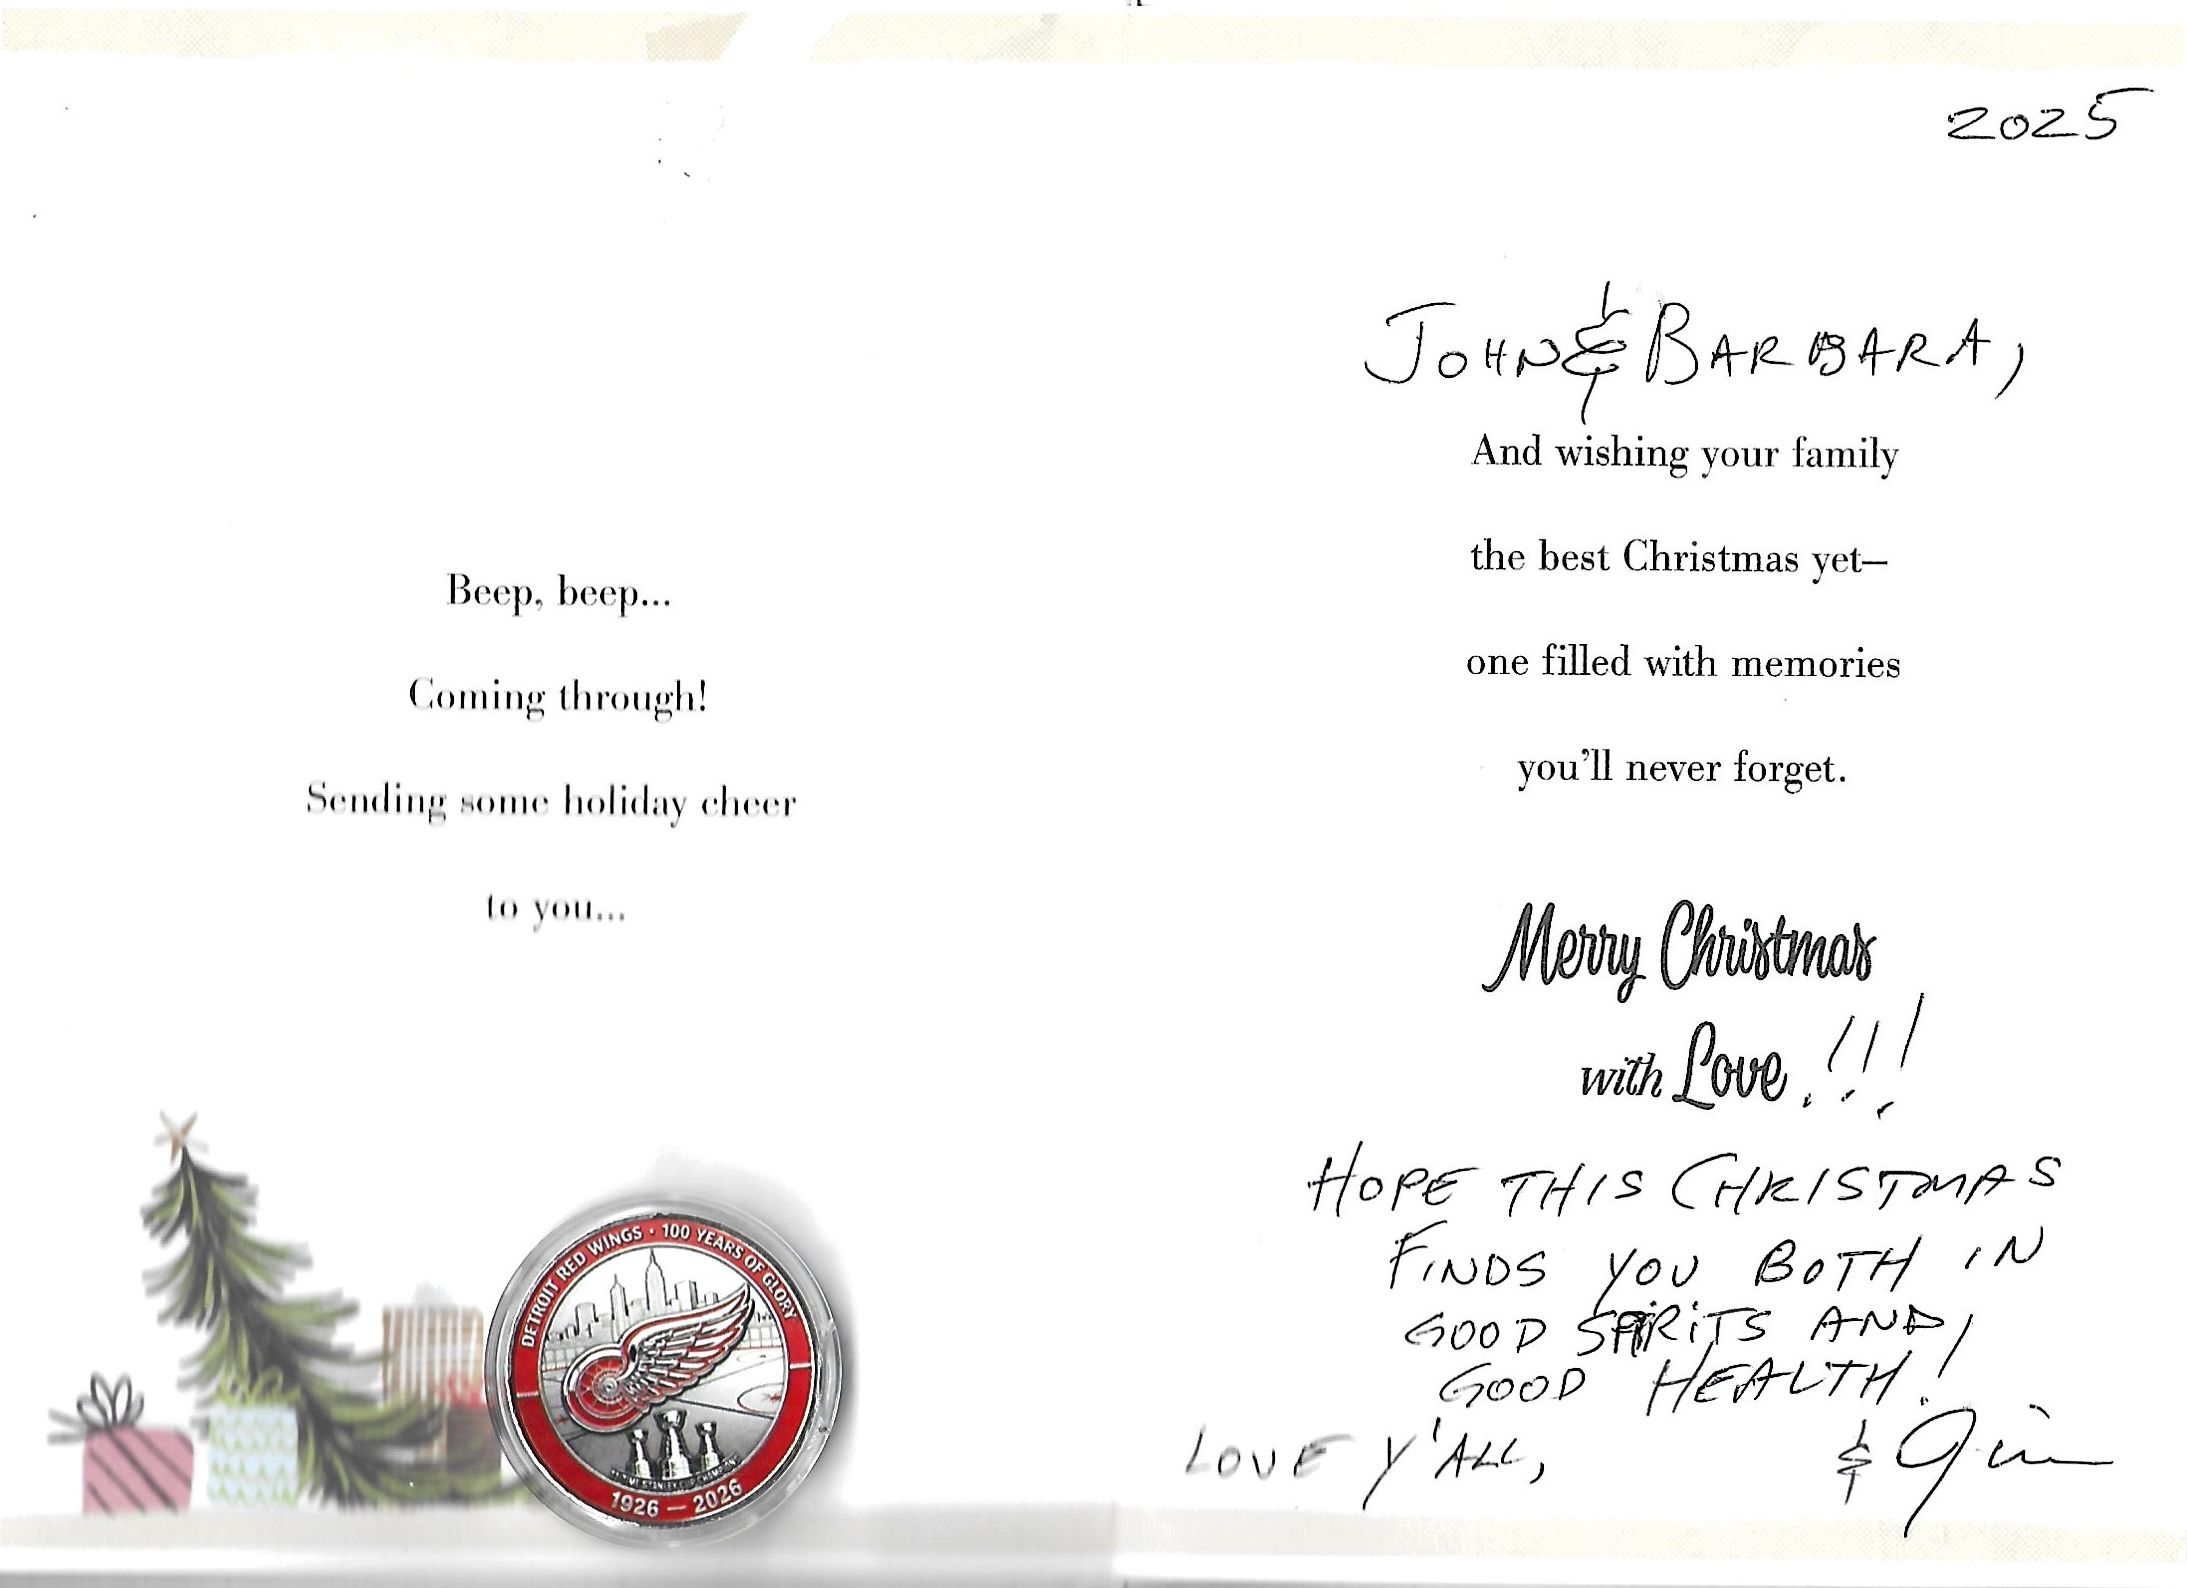 Beep, beep...
Coming through!
Sending some holiday cheer
to you...
DETROIT RED WINGS · 100 YEARS OF GLORY
1926 — 2026
2025
JOHN & BARBARA,
And wishing your family
the best Christmas yet—
one filled with memories
you'll never forget.
Merry Christmas
with Love!!!
HOPE THIS CHRISTMAS
FINDS YOU BOTH IN
GOOD SPIRITS AND
GOOD HEALTH!
LOVE Y'ALL,
& Jim